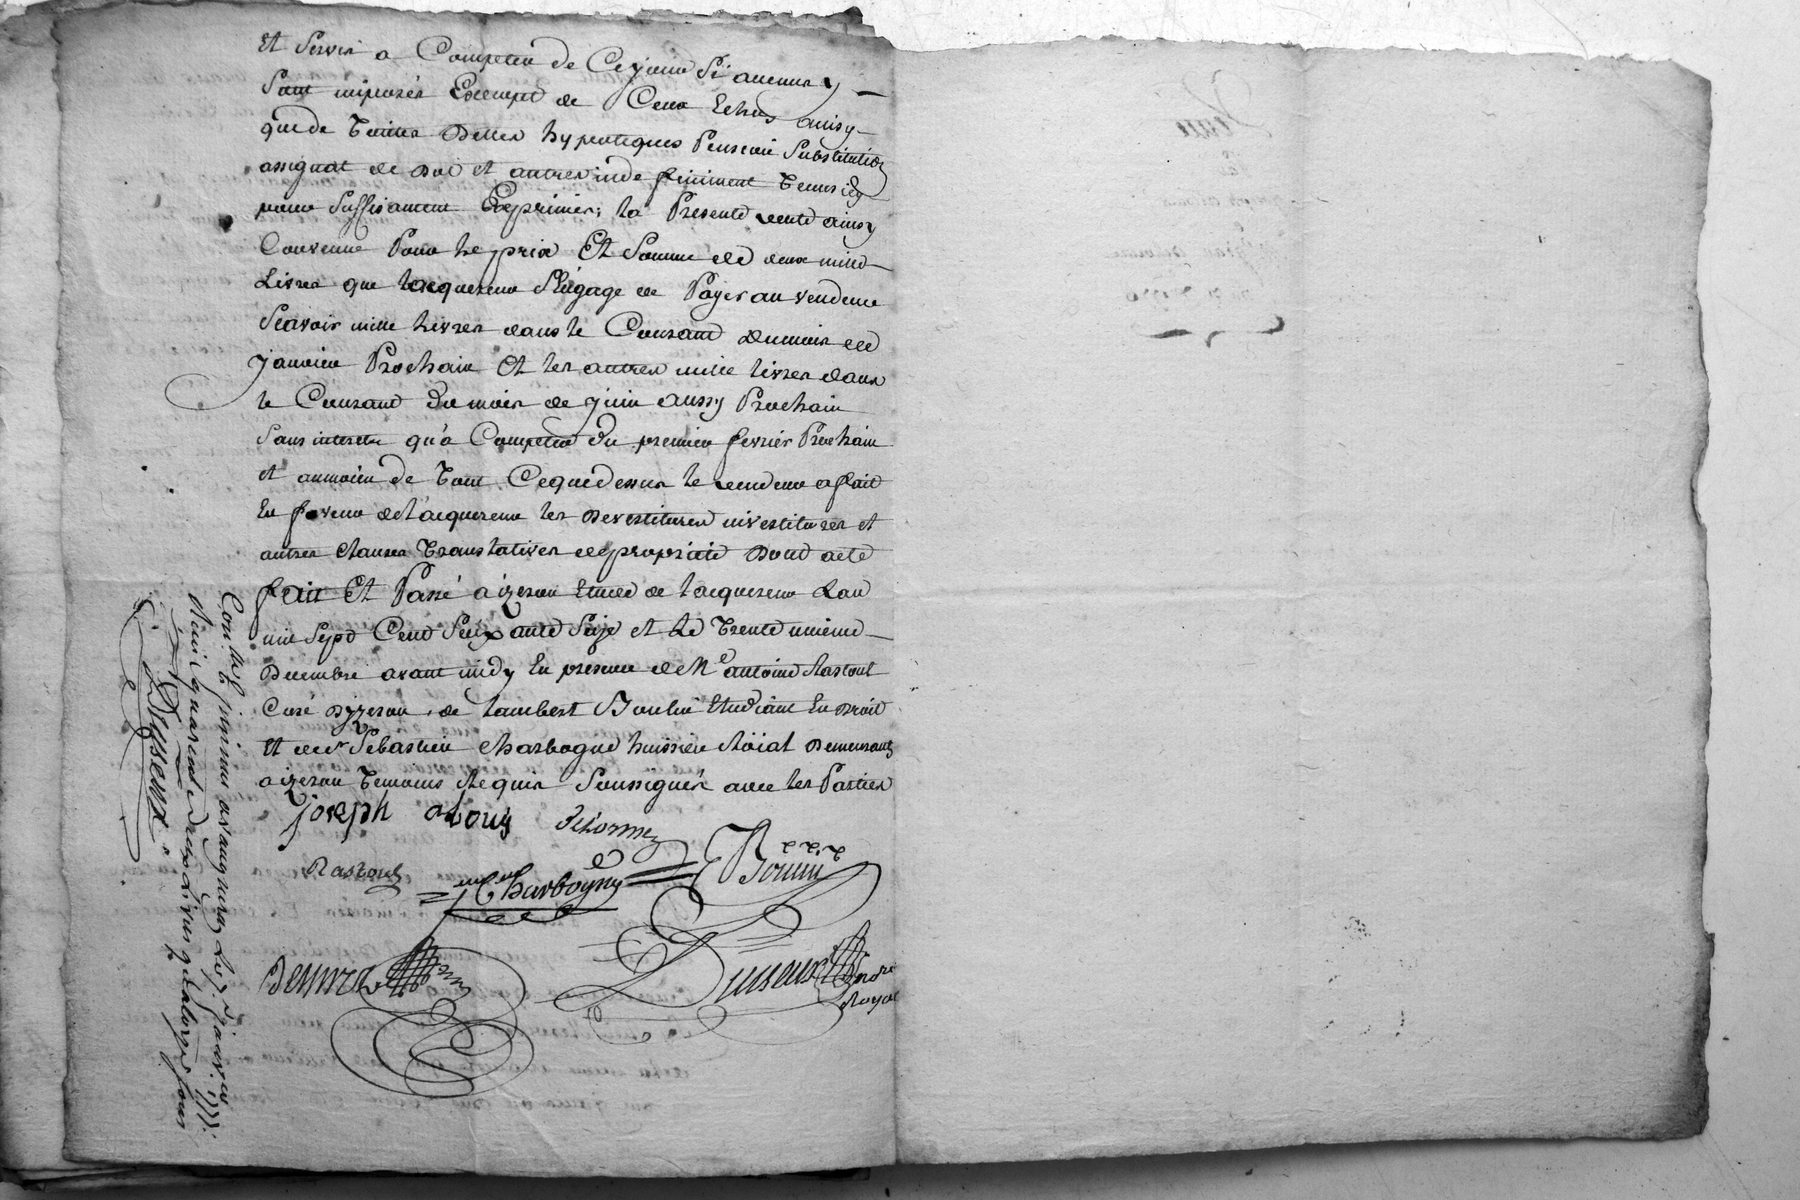 Et servir a Compter de Ce jour Si aucuns y
Sont imposés Exempt de Ceux Echus ainsy
que de toutes Dettes hypoteques Pension Substitution
assignat de Dot et autres indefiniment tenus icy
pour suffisament Exprimés; la Presente vente ainsy
Convenue Pour le prix Et Somme de deux mille
Livres que lacquereur S'Engage de Payer au vendeur
Scavoir mille livres dans le Courant du mois de
janvier Prochain Et les autres mille livres dans
le Courant du mois de juin aussy Prochain
Sans interets qu'a Compter du premier fevrier Prochain
et au moien de tout Ce que dessus le vendeur a fait
En faveur de lacquereur les Devestitures investitures et
autres Clauses translatives de proprieté Dont acte
fait Et Passé a izeron Etude de lacquereur Lan
mil Sept Cent Soixante Seize et le trente unieme
Decembre avant midy En presence de Me antoine Rastoul
Curé Dyzeron, de lambert Boulin Etudiant En Droit
Et de Sr Sebastien Charbogne huissier Roïal Demeurants
a izeron temoins Requis Soussignés avec les Parties
joseph
Rastoul
Charbogny
Duseux
Royal
Conlle a
avangneray Le 7e janvier 1777.
Reçu quarende deux Livres quatorze sous
Duseux